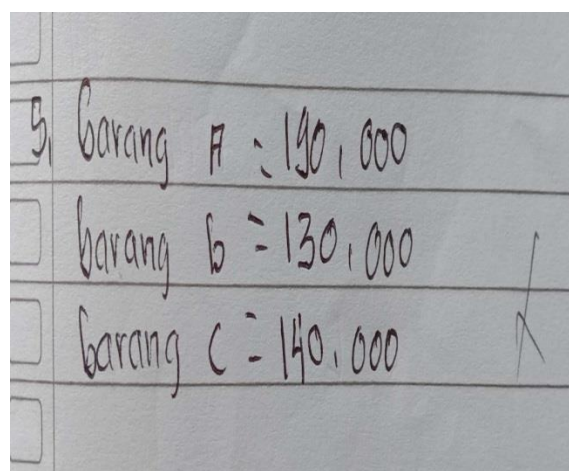 5. barang A = 190,000
barang b = 130,000
barang C = 140,000